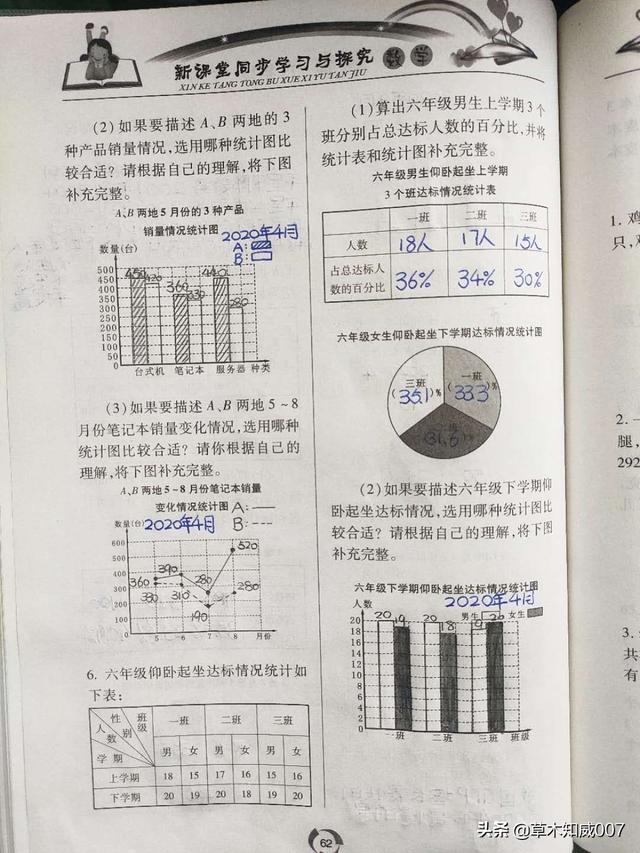 新课堂同步学习与探究 数学
XIN KE TANG TONG BU XUE XI YU TAN JIU
(2)如果要描述A、B两地的3
种产品销量情况,选用哪种统计图比
较合适?请根据自己的理解,将下图
补充完整。
A、B两地5月份的3种产品
销量情况统计图 2020年4月
数量(台) A:
B:
500
450
400
350
300
250
200
150
100
50
0
450 420 360 330 440 280
台式机 笔记本 服务器 种类
(3)如果要描述A、B两地5~8
月份笔记本销量变化情况,选用哪种
统计图比较合适?请你根据自己的
理解,将下图补充完整。
A、B两地5~8月份笔记本销量
变化情况统计图 A:
数量(台) 2020年4月 B:
600
500
400
300
200
100
0
360 390 280 520
330 310 190 280
5 6 7 8 月份
6. 六年级仰卧起坐达标情况统计如
下表:
性别 班级 人数 学期 一班 二班 三班
男 女 男 女 男 女
上学期 18 15 17 16 15 16
下学期 20 19 20 18 19 20
(1)算出六年级男生上学期3个
班分别占总达标人数的百分比,并将
统计表和统计图补充完整。
六年级男生仰卧起坐上学期
3个班达标情况统计表
一班 二班 三班
人数 18人 17人 15人
占总达标人
数的百分比 36% 34% 30%
六年级女生仰卧起坐下学期达标情况统计图
三班 一班
(35.1)% (33.3)%
二班
(31.6)%
(2)如果要描述六年级下学期仰
卧起坐达标情况,选用哪种统计图比
较合适?请根据自己的理解,将下图
补充完整。
六年级下学期仰卧起坐达标情况统计图
人数 2020年4月
男生 女生
20
18
16
14
12
10
8
6
4
2
0
20 19 20 18 19 20
一班 二班 三班 班级
62
1. 鸡
只,
2. 一
腿,
292
3.
共
有
头条 @草木知威007